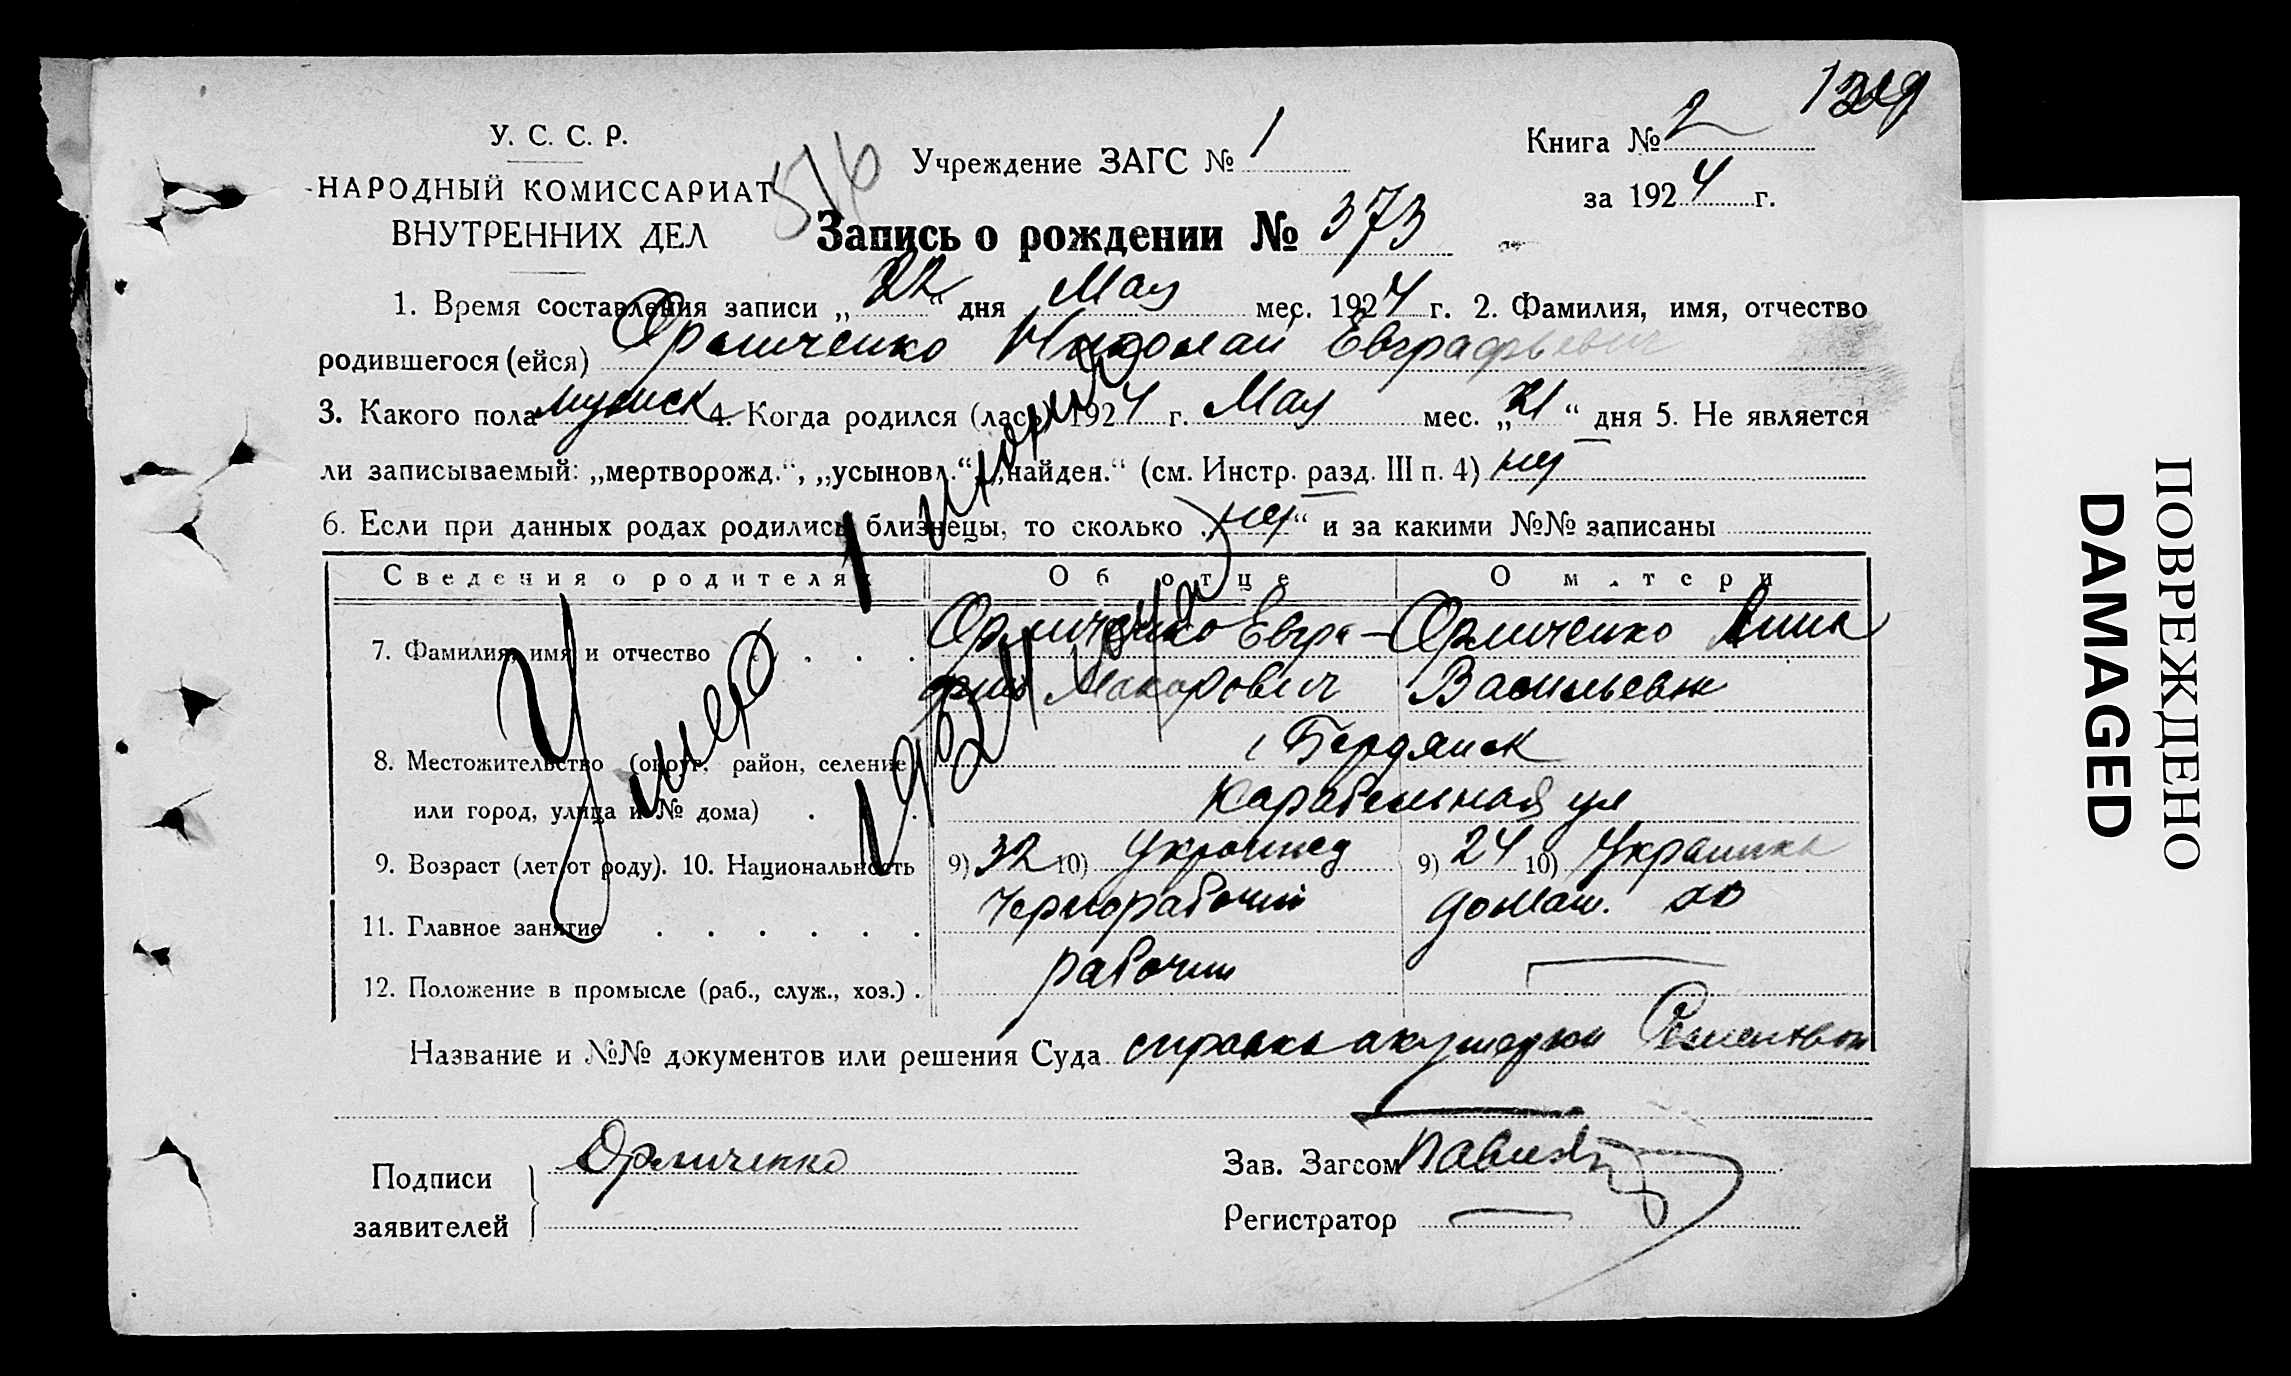 У. С. С. Р.
НАРОДНЫЙ КОМИССАРИАТ
ВНУТРЕННИХ ДЕЛ
516
Учреждение ЗАГС № 1
Книга № 2
за 1924 г.
Запись о рождении № 373
1. Время составления записи „22“ дня Мая мес. 1924 г. 2. Фамилия, имя, отчество
родившегося (ейся) Орличенко Николай Евграфьевич
3. Какого пола мужск 4. Когда родился (лась) 1924 г. Мая мес. „21“ дня 5. Не является
ли записываемый: „мертворожд.“, „усыновл.“, „найден.“ (см. Инстр. разд. III п. 4) нет
6. Если при данных родах родились близнецы, то сколько „нет“ и за какими №№ записаны
Сведения о родителях Об отце О матери
7. Фамилия, имя и отчество Орличенко Евгра- Орличенко Анна
Макарович Васильевн
8. Местожительство (округ, район, селение г Бердянск
или город, улица и № дома) Карабельная ул
9. Возраст (лет от роду). 10. Национальность 9) 32 10) Украинец 9) 24 10) Украинка
11. Главное занятие Чернорабочий домаш. хоз
12. Положение в промысле (раб., служ., хоз.) рабочий
Умер 1 июня
1924 года
Название и №№ документов или решения Суда справка акушерки
Подписи заявителей Орличенко
Зав. Загсом
Регистратор
ПОВРЕЖДЕНО
DAMAGED